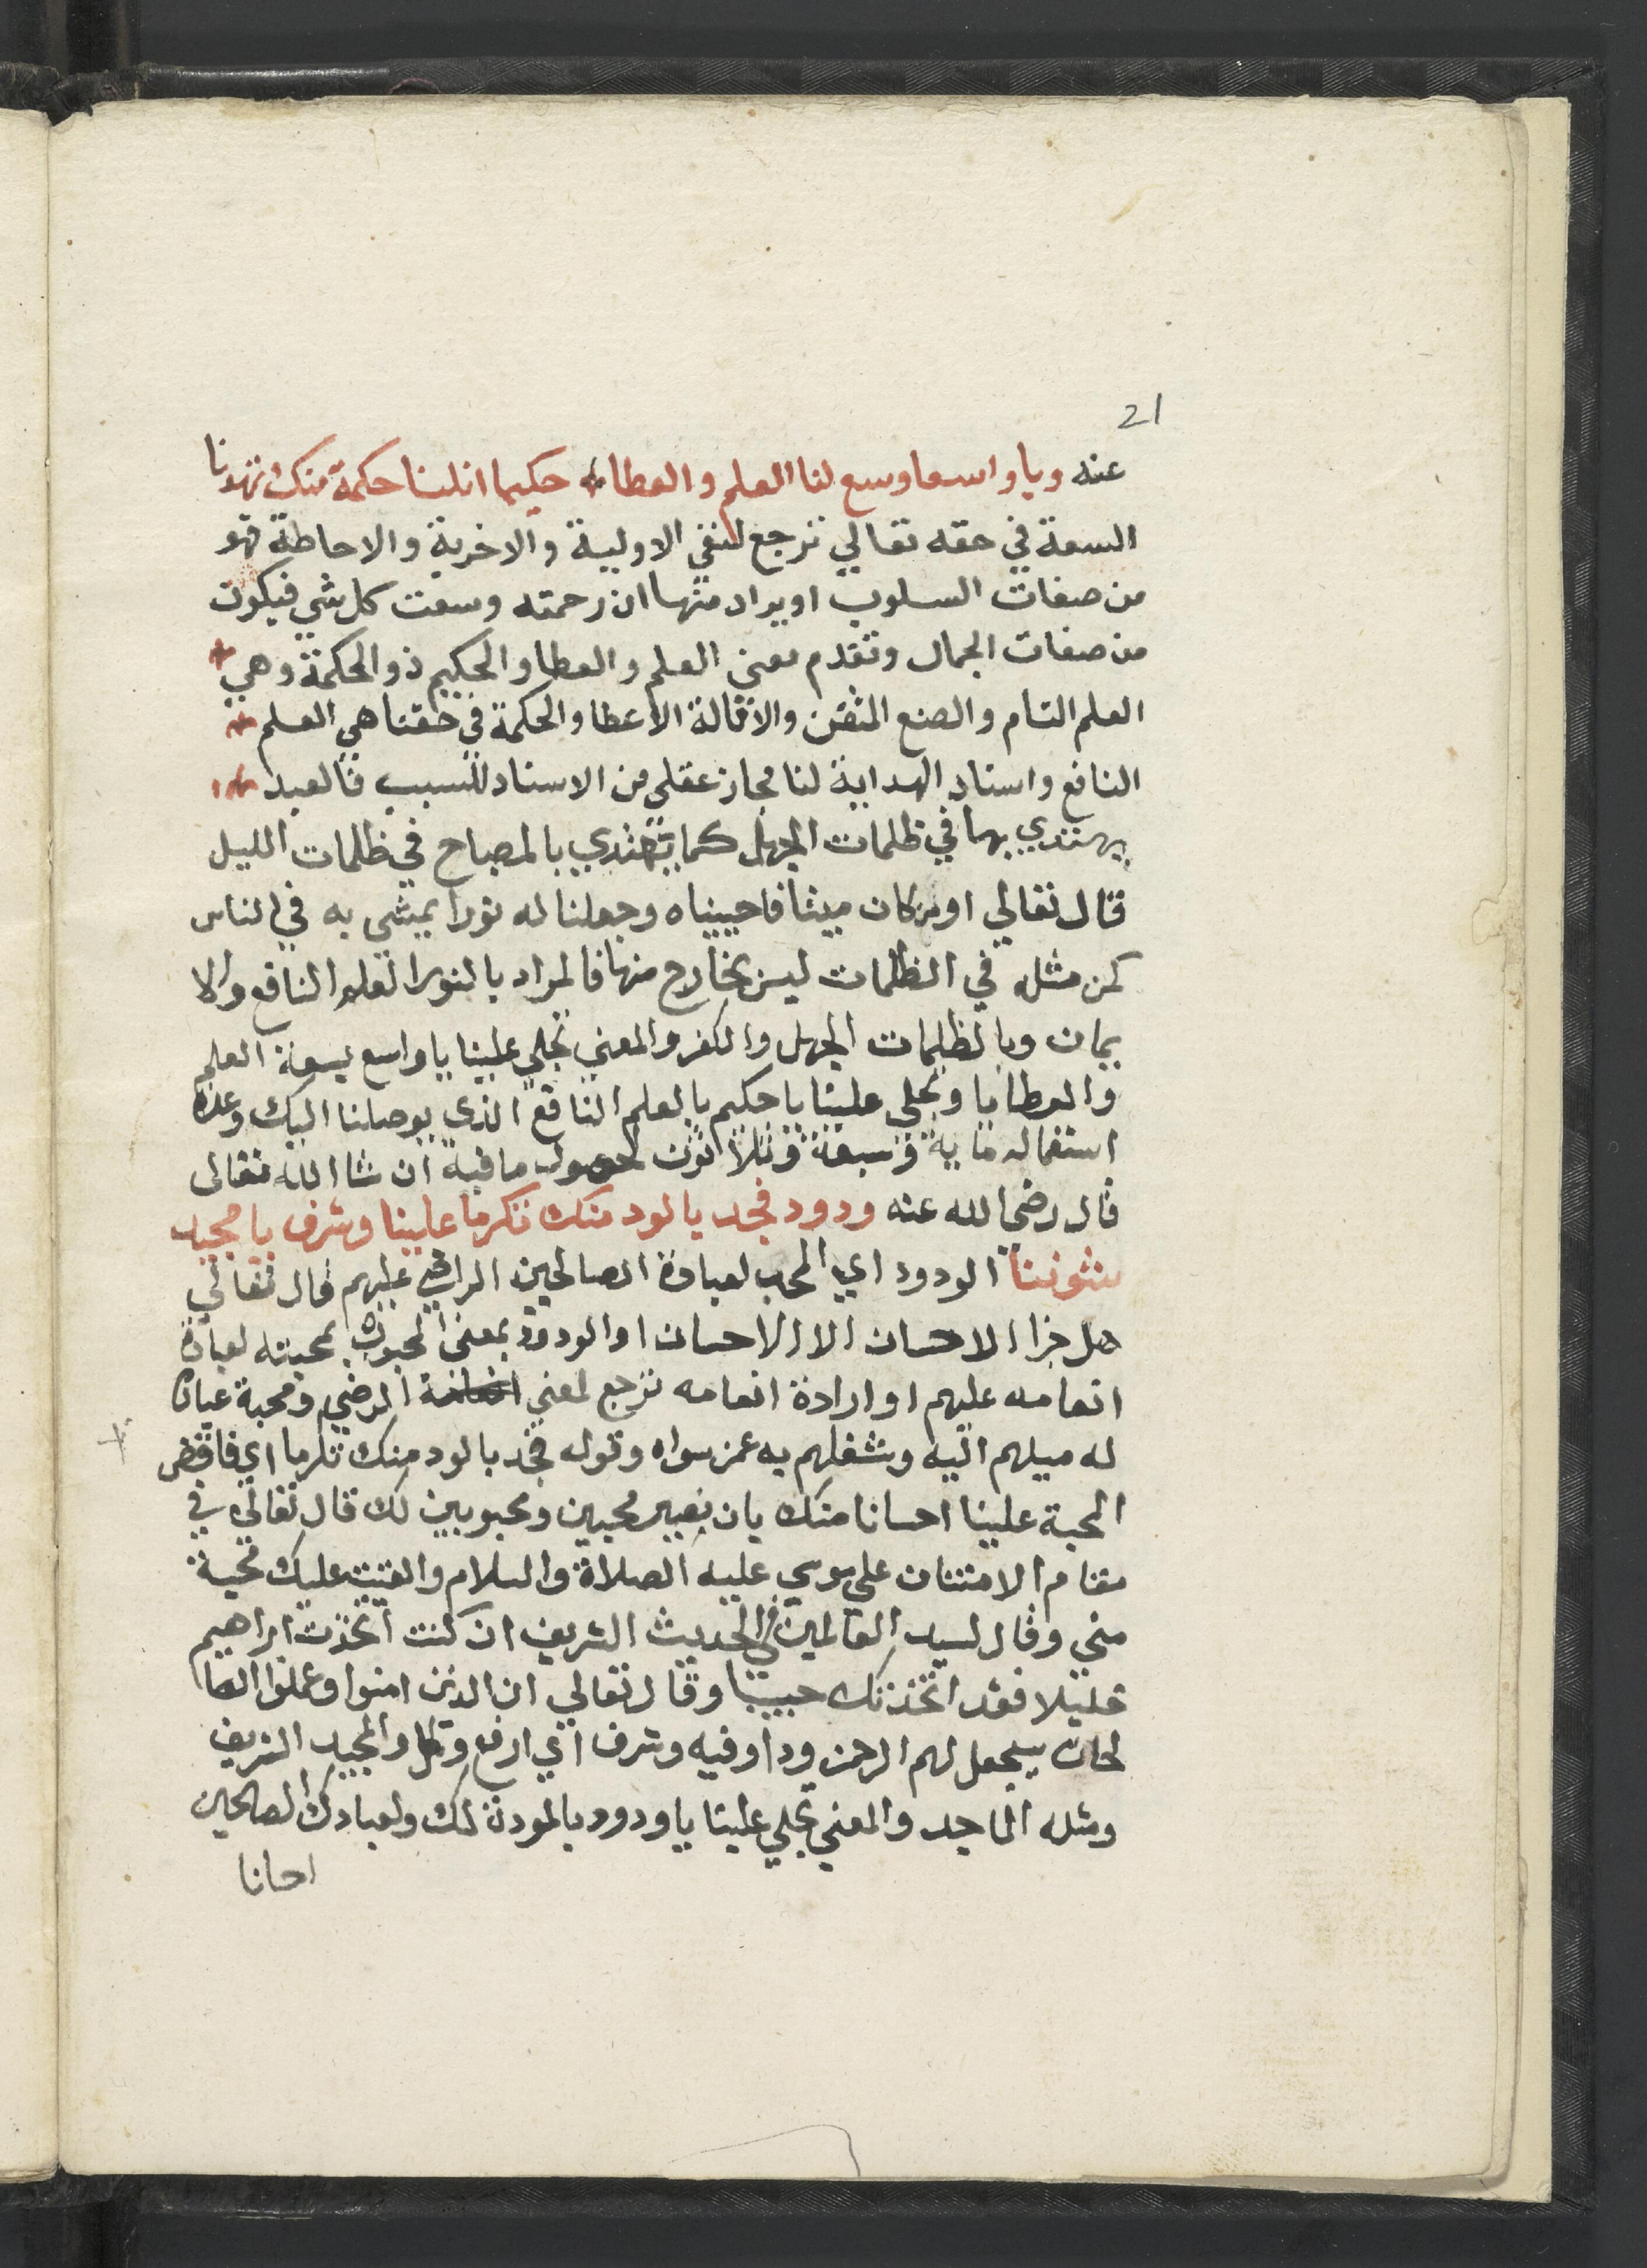 21
عنه ويا واسعا وسع لنا العلم والعطا حكيما انلنا حكمة منك تهدنا
السعة في حقه تعالي ترجع لنفي الاولية والاخرية والاحاطة فهو
من صفات السلوب او يراد منها ان رحمته وسعت كل شي فيكون
من صفات الجمال وتقدم معني العلم والعطا والحكيم ذو الحكمة وهي
العلم التام والصنع المتقن والاقالة الاعطا والحكمة في حقنا هي العلم
النافع واسناد الهداية لنا مجاز عقلي من الاسناد للسبب فالعبد
يهتدي بها في ظلمات الجهل كما يهتدي بالمصباح في ظلمات الليل
قال تعالي او من كان ميتا فاحييناه وجعلنا له نورا يمشي به في الناس
كمن مثله في الظلمات ليس بخارج منها فالمراد بالنور العلم النافع والا
يمان وبالظلمات الجهل والكفر والمعني تجلي علينا يا واسع بسعة العلم
والعطايا وتجلي علينا يا حكيم بالعلم النافع الذي يوصلنا اليك وعدة
استعماله ماية وسبعة وثلاثون لحصول ما فيه ان شا الله تعالى
قال رضي الله عنه ودود فجد بالود منك تكرما علينا وشرف يا مجيد
شئوننا الودود اي المحب لعبادة الصالحين الراضي عليهم قال تعالي
هل جزا الاحسان الا الاحسان او الودود بمعني المحبوب بمحبته لعبادة
انعامه عليهم او ارادة انعامه ترجع لمعني الرضي ومحبة عبادة
له ميلهم اليه وشغلهم به عمن سواه وقوله فجد بالود منك تكرما اي فافض
المحبة علينا احسانا منك بان نصير محبين ومحبوبين لك قال تعالي في
مقام الامتنان علي موسي عليه الصلاة والسلام والقيت عليك محبة
مني وقال لسيد العالمين في الحديث الشريف ان كنت اتخذت ابراهيم
خليلا فقد اتخذتك حبيبا وقال تعالي ان الذين امنوا وعملوا الصا
لحات سيجعل لهم الرحمن ودا وفيه وشرف اي ارفع وكمل والمجيد الشريف
ومثله الماجد والمعني تجلي علينا يا ودود بالمودة لك ولعبادك الصالحين
احسانا